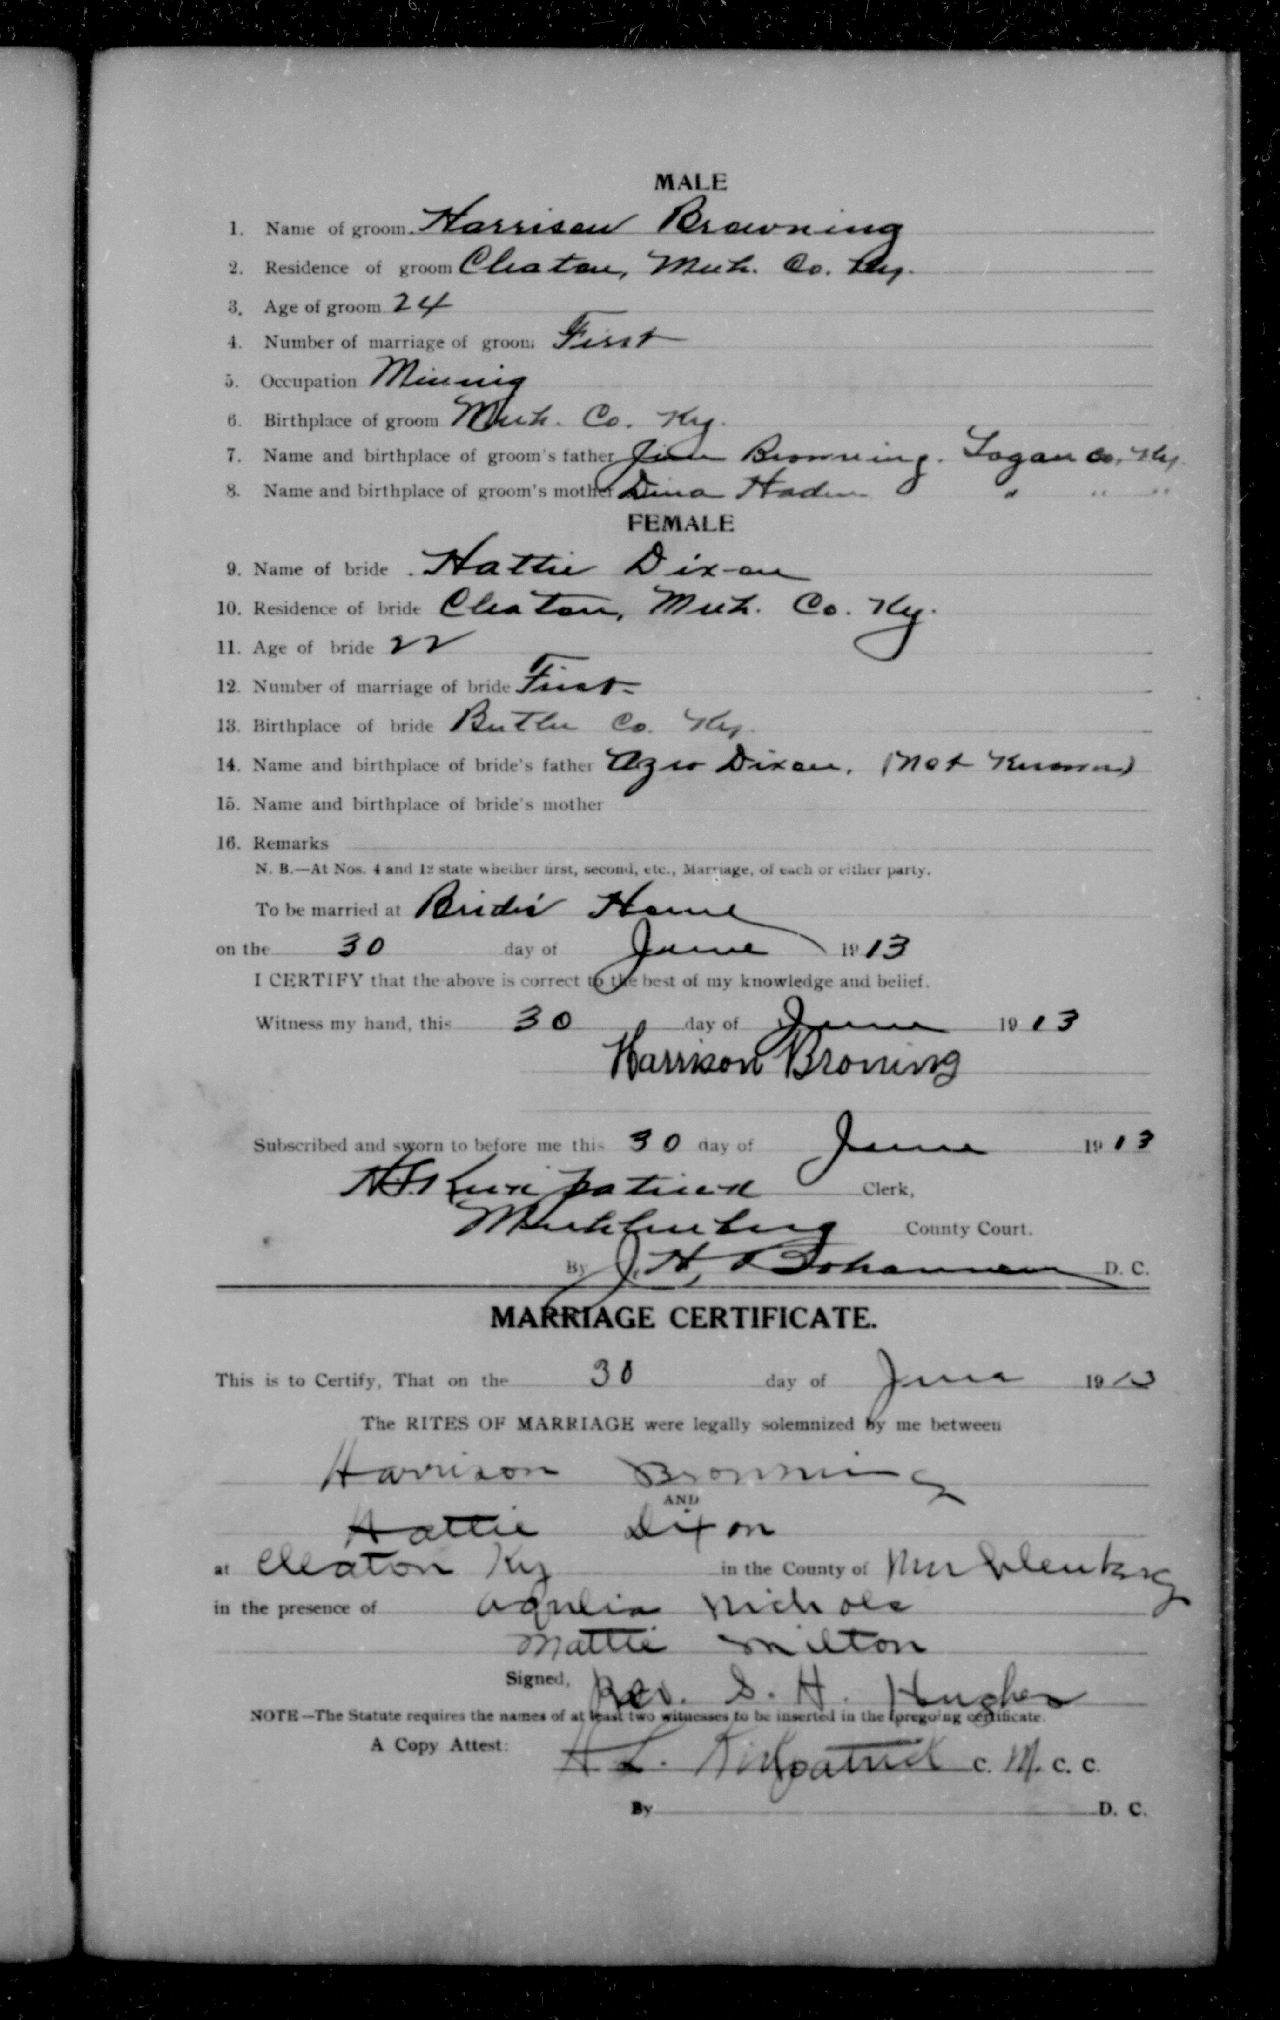 MALE
1. Name of groom Harrison Browning
2. Residence of groom Cleaton, Muh. Co. Ky.
3. Age of groom 24
4. Number of marriage of groom First
5. Occupation Mining
6. Birthplace of groom Muh. Co. Ky.
7. Name and birthplace of groom's father Jim Browning. Logan Co. Ky.
8. Name and birthplace of groom's mother Dina Haden " " "
FEMALE
9. Name of bride Hattie Dixon
10. Residence of bride Cleaton, Muh. Co. Ky.
11. Age of bride 22
12. Number of marriage of bride First
13. Birthplace of bride Butler Co. Ky.
14. Name and birthplace of bride's father Dixon. (Not Known)
15. Name and birthplace of bride's mother
16. Remarks
N. B.—At Nos. 4 and 12 state whether first, second, etc., Marriage, of each or either party.
To be married at Bride's Home
on the 30 day of June 1913
I CERTIFY that the above is correct to the best of my knowledge and belief.
Witness my hand, this 30 day of June 1913
Harrison Broning
Subscribed and sworn to before me this 30 day of June 1913
H. L. Kirkpatrick Clerk,
Muhlenberg County Court.
By J. H. Bohannon D. C.
MARRIAGE CERTIFICATE.
This is to Certify, That on the 30 day of June 1913
The RITES OF MARRIAGE were legally solemnized by me between
Harrison Browning
AND
Hattie Dixon
at Cleaton Ky in the County of Muhlenberg
in the presence of Nichols
Mattie Milton
Signed, Rev. S. H. Hughes
NOTE—The Statute requires the names of at least two witnesses to be inserted in the foregoing certificate.
A Copy Attest: H L. Kirkpatrick C. M. C. C.
By D. C.